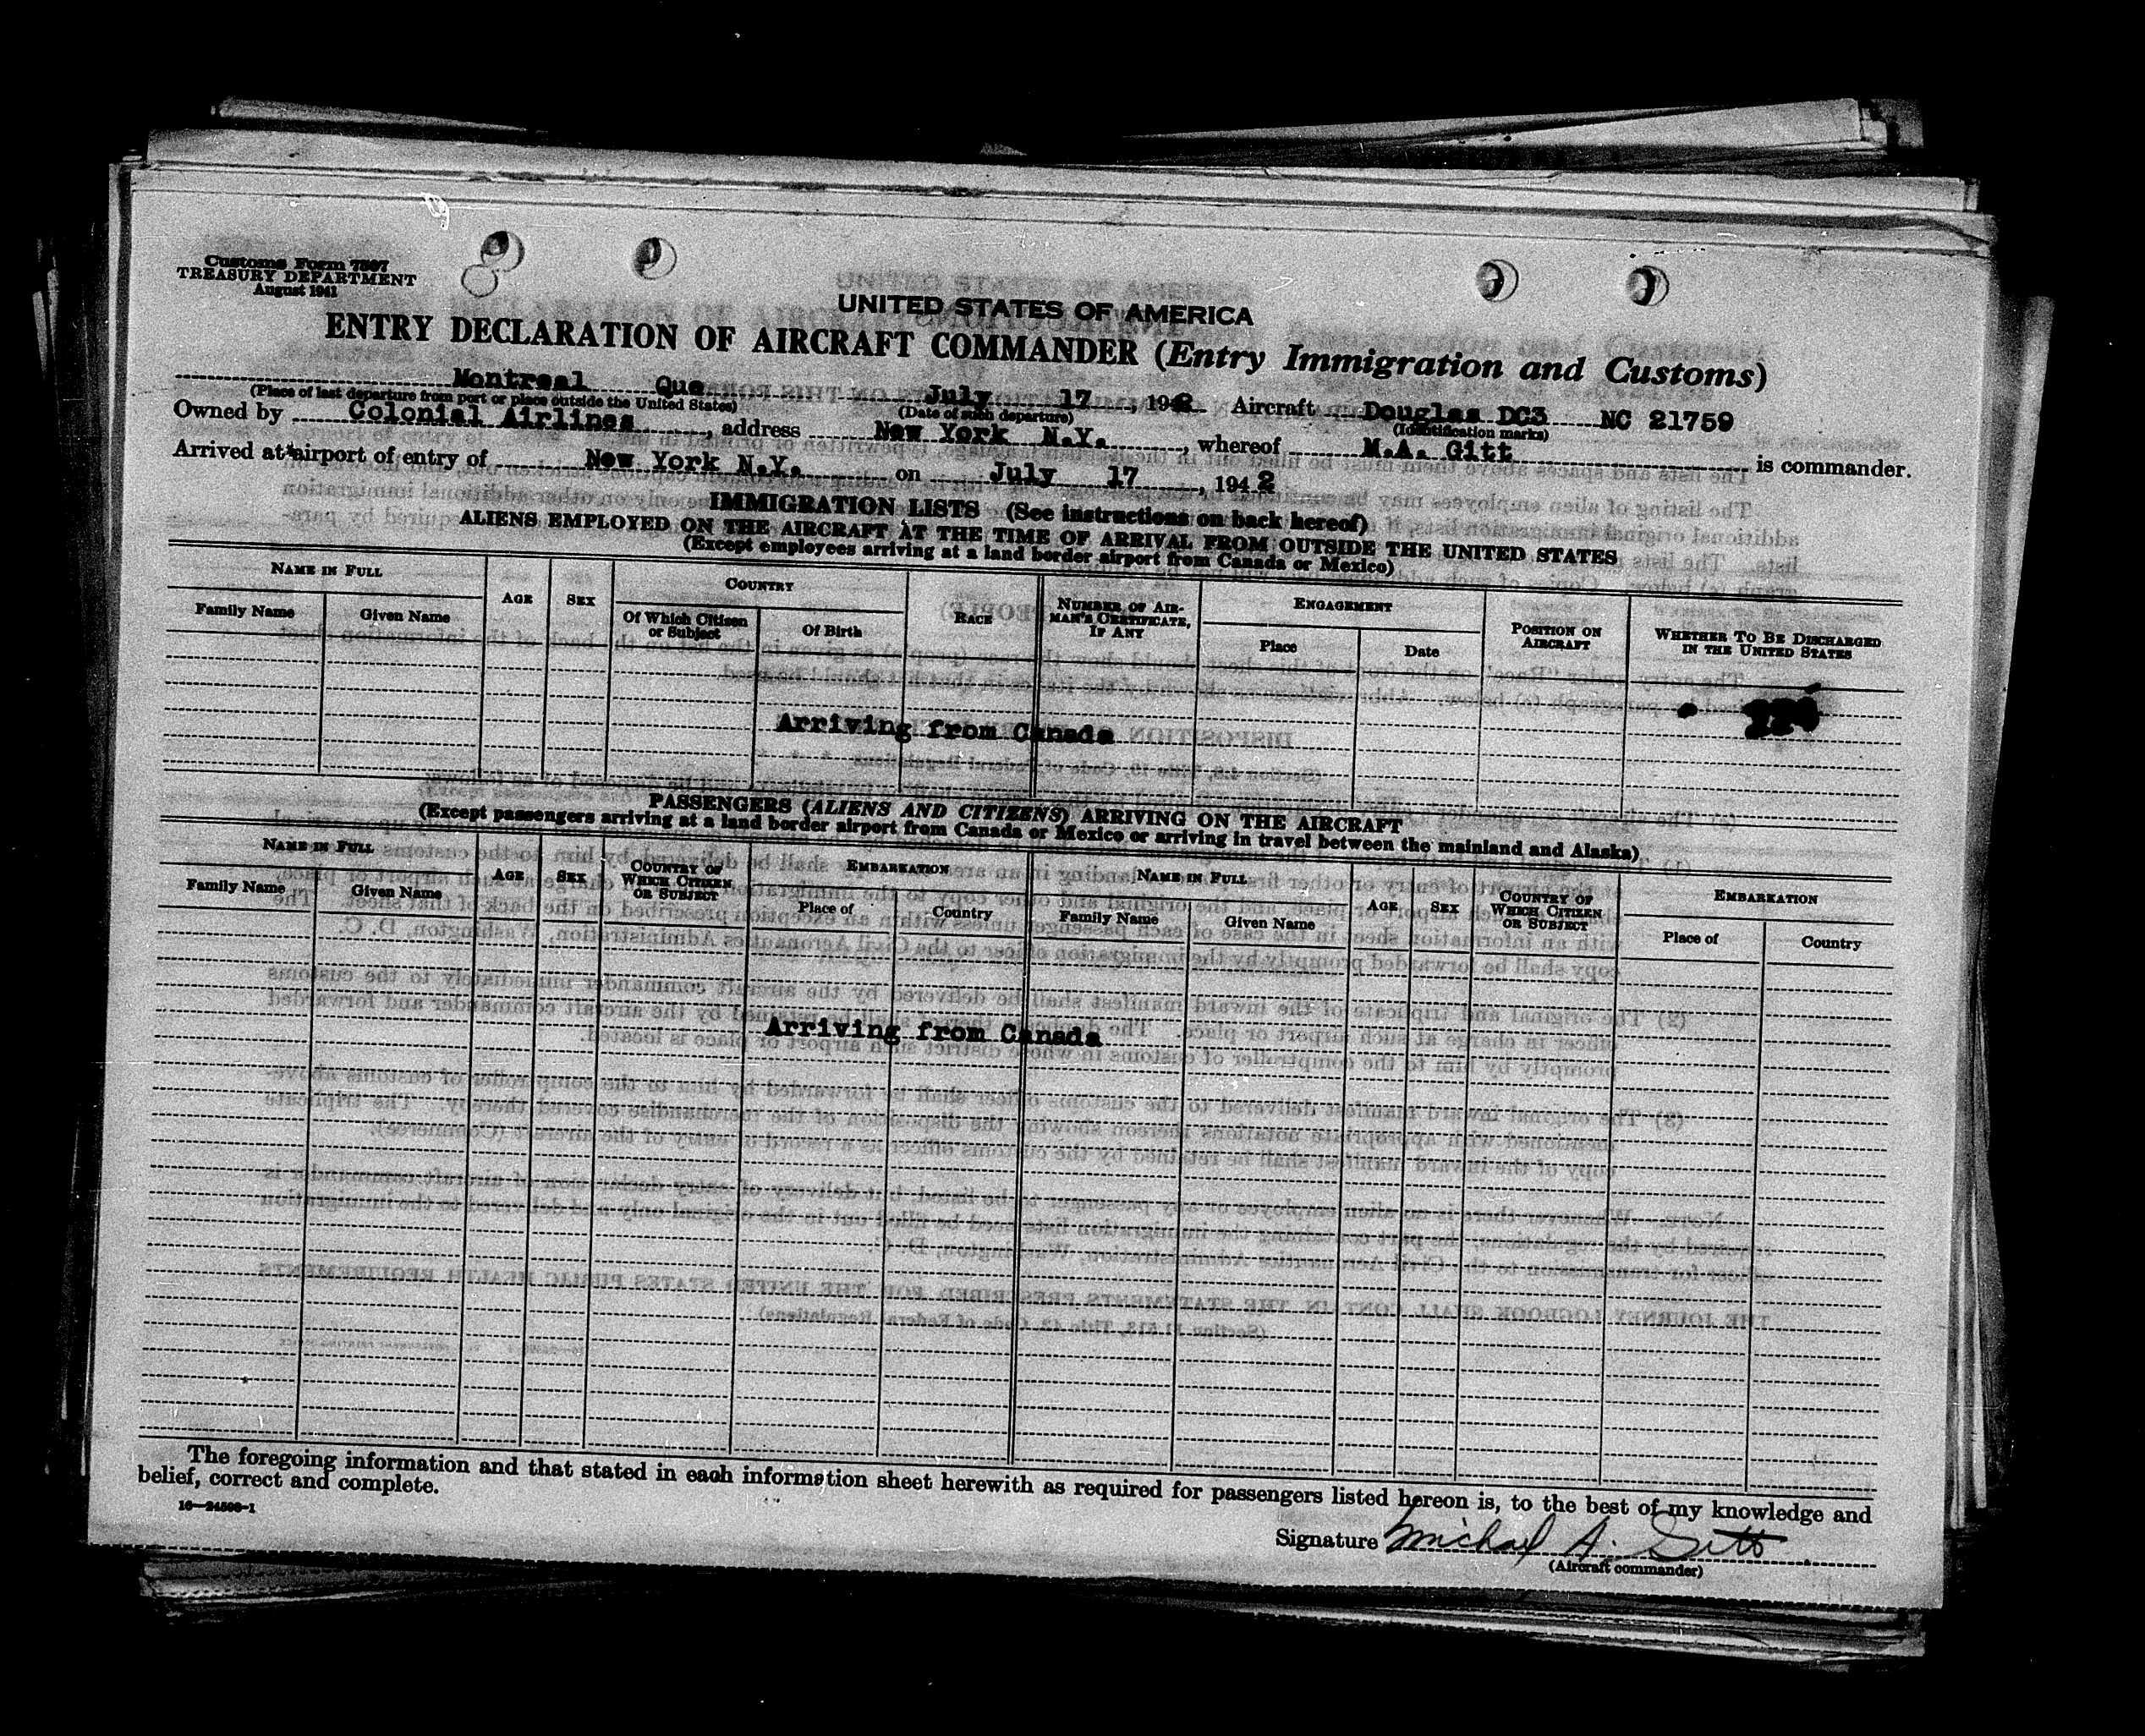 Customs Form 7507
TREASURY DEPARTMENT
August 1941
UNITED STATES OF AMERICA
ENTRY DECLARATION OF AIRCRAFT COMMANDER (Entry Immigration and Customs)
Montreal Que July 17, 1942 Aircraft Douglas DC3 NC 21759
(Place of last departure from port or place outside the United States) (Date of such departure) (Identification marks)
Owned by Colonial Airlines, address New York N.Y., whereof M.A. Gitt is commander.
Arrived at airport of entry of New York N.Y. on July 17, 1942
IMMIGRATION LISTS (See instructions on back hereof)
ALIENS EMPLOYED ON THE AIRCRAFT AT THE TIME OF ARRIVAL FROM OUTSIDE THE UNITED STATES
(Except employees arriving at a land border airport from Canada or Mexico)
NAME IN FULL
Family Name Given Name
AGE
SEX
COUNTRY
Of Which Citizen or Subject Of Birth
RACE
NUMBER OF AIR-
MAN'S CERTIFICATE,
IF ANY
ENGAGEMENT
Place Date
POSITION ON
AIRCRAFT
WHETHER TO BE DISCHARGED
IN THE UNITED STATES
Arriving from Canada
PASSENGERS (ALIENS AND CITIZENS) ARRIVING ON THE AIRCRAFT
(Except passengers arriving at a land border airport from Canada or Mexico or arriving in travel between the mainland and Alaska)
NAME IN FULL
Family Name Given Name
AGE
SEX
COUNTRY OF
WHICH CITIZEN
OR SUBJECT
EMBARKATION
Place of Country
NAME IN FULL
Family Name Given Name
AGE
SEX
COUNTRY OF
WHICH CITIZEN
OR SUBJECT
EMBARKATION
Place of Country
Arriving from Canada
The foregoing information and that stated in each information sheet herewith as required for passengers listed hereon is, to the best of my knowledge and
belief, correct and complete.
16—24506-1
Signature Michael A. Gitt
(Aircraft commander)